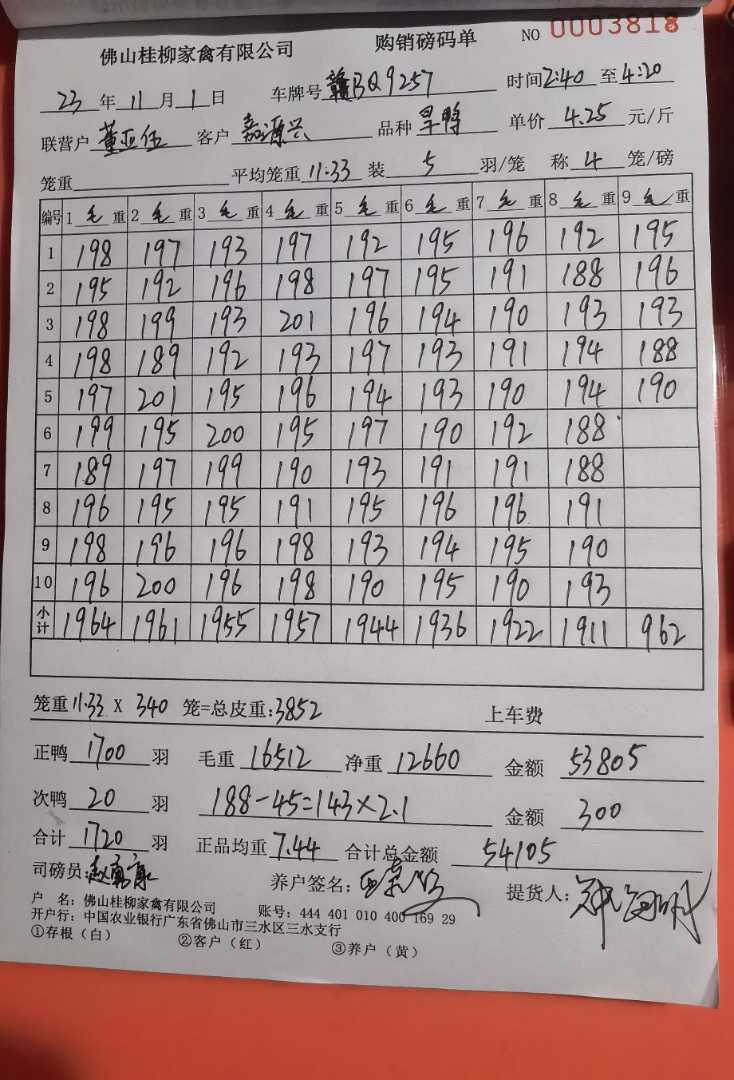 佛山桂柳家禽有限公司 购销磅码单 NO 0003818
23 年 11 月 1 日 车牌号 赣BQ9257 时间 2:40 至 4:20
联营户 董亚伍 客户 嘉源兴 品种 旱鸭 单价 4.25 元/斤
笼重 平均笼重 11.33 装 5 羽/笼 称 4 笼/磅
编号 1 毛 重 2 毛 重 3 毛 重 4 毛 重 5 毛 重 6 毛 重 7 毛 重 8 毛 重 9 毛 重
1 198 197 193 197 192 195 196 192 195
2 195 192 196 198 197 195 191 188 196
3 198 199 193 201 196 194 190 193 193
4 198 189 192 193 197 193 191 194 188
5 197 201 195 196 194 193 190 194 190
6 199 195 200 195 197 190 192 188
7 189 197 199 190 193 191 191 188
8 196 195 195 191 195 196 196 191
9 198 196 196 198 193 194 195 190
10 196 200 196 198 190 195 190 193
小计 1964 1961 1955 1957 1944 1936 1922 1911 962
笼重 11.33 X 340 笼=总皮重:3852 上车费
正鸭 1700 羽 毛重 16512 净重 12660 金额 53805
次鸭 20 羽 188-45=143×2.1 金额 300
合计 1720 羽 正品均重 7.44 合计总金额 54105
司磅员: 养户签名: 提货人:
户 名: 佛山桂柳家禽有限公司 账号: 444 401 010 400 169 29
开户行: 中国农业银行广东省佛山市三水区三水支行
①存根（白） ②客户（红） ③养户（黄）